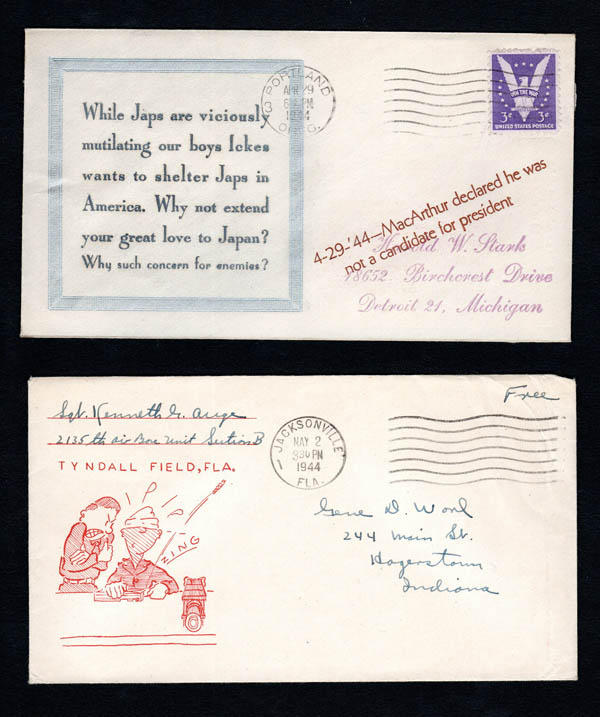 While Japs are viciously
mutilating our boys Ickes
wants to shelter Japs in
America. Why not extend
your great love to Japan?
Why such concern for enemies?
PORTLAND
3
APR 29
PM
1944
OREG.
WIN THE WAR
3¢ 3¢
UNITED STATES POSTAGE
4-29-'44—MacArthur declared he was
not a candidate for president
Harold W. Stark
18652 Birchcrest Drive
Detroit 21, Michigan
Sgt. Kenneth G. Auge
2135th Air Base Unit Section B
TYNDALL FIELD, FLA.
ZING
JACKSONVILLE
1
MAY 2
3 30 PM
1944
FLA.
Free
Gene D. Worl
244 Main St.
Hagerstown
Indiana